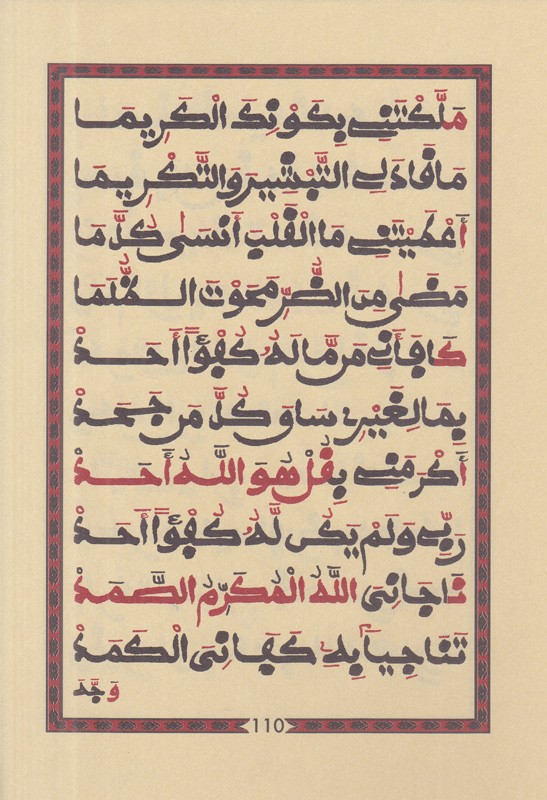 مَلَّكْتَنِي بِكَوْنِكَ الْكَرِيمَا
مَا قَادَ لِي التَّبْشِيرَ وَالتَّكْرِيمَا
أَعْطَيْتَنِي مَا الْقَلْبَ أَنْسَى كُلَّمَا
مَضَى مِنَ الضُّرِّ مَحَوْتَ الظُّلَمَا
كَافَأَنِي مَن مَّا لَهُ كُفُؤًا أَحَدْ
بِمَا لِغَيْرِي سَاقَ كُلَّ مَن جَحَدْ
أَكْرَمَنِي بِقُلْ هُوَ اللَّهُ أَحَدْ
رَبِّي وَلَمْ يَكُن لَّهُ كُفُؤًا أَحَدْ
نَاجَانِيَ اللَّهُ الْمُكَرِّمُ الصَّمَدْ
تَنَاجِيًا بِهِ كَفَانِيَ الْكَمَدْ
110